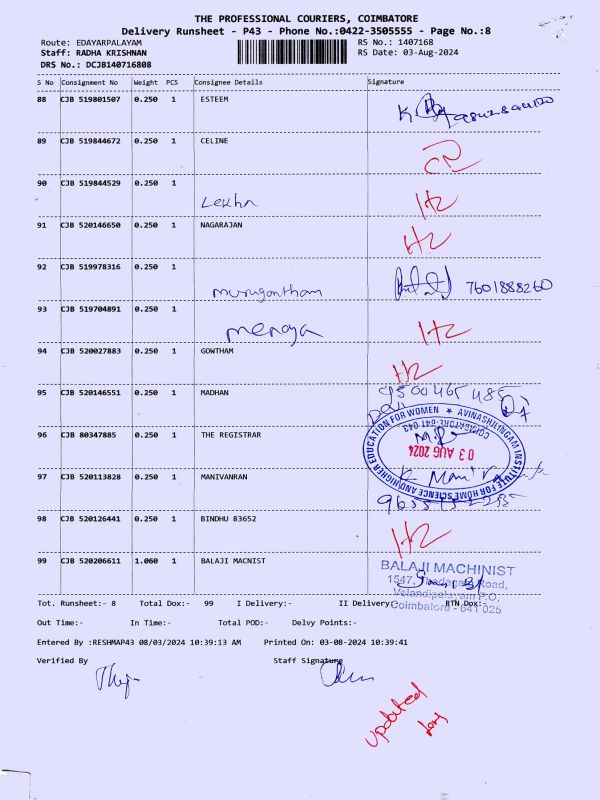 THE PROFESSIONAL COURIERS, COIMBATORE
Delivery Runsheet - P43 - Phone No.:0422-3505555 - Page No.:8
Route: EDAYARPALAYAM RS No.: 1407168
Staff: RADHA KRISHNAN RS Date: 03-Aug-2024
DRS No.: DCJB140716808
S No Consignment No Weight PCS Consignee Details Signature
88 CJB 519801507 0.250 1 ESTEEM
89 CJB 519844672 0.250 1 CELINE
90 CJB 519844529 0.250 1
Lekha
91 CJB 520146650 0.250 1 NAGARAJAN
92 CJB 519978316 0.250 1
7601888260
93 CJB 519704891 0.250 1
94 CJB 520027883 0.250 1 GOWTHAM
95 CJB 520146551 0.250 1 MADHAN 9500465485
96 CJB 80347885 0.250 1 THE REGISTRAR
AVINASHILINGAM INSTITUTE FOR HOME SCIENCE AND HIGHER EDUCATION FOR WOMEN
COIMBATORE-641 043
03 AUG 2024
97 CJB 520113828 0.250 1 MANIVANRAN
98 CJB 520126441 0.250 1 BINDHU 83652
99 CJB 520206611 1.060 1 BALAJI MACNIST
BALAJI MACHINIST
1547, Thadagam Road,
Velandipalayam P.O.
Coimbatore - 641 025
Tot. Runsheet:- 8 Total Dox:- 99 I Delivery:- II Delivery:- RTN Dox:-
Out Time:- In Time:- Total POD:- Delvy Points:-
Entered By :RESHMAP43 08/03/2024 10:39:13 AM Printed On: 03-08-2024 10:39:41
Verified By Staff Signature
updated